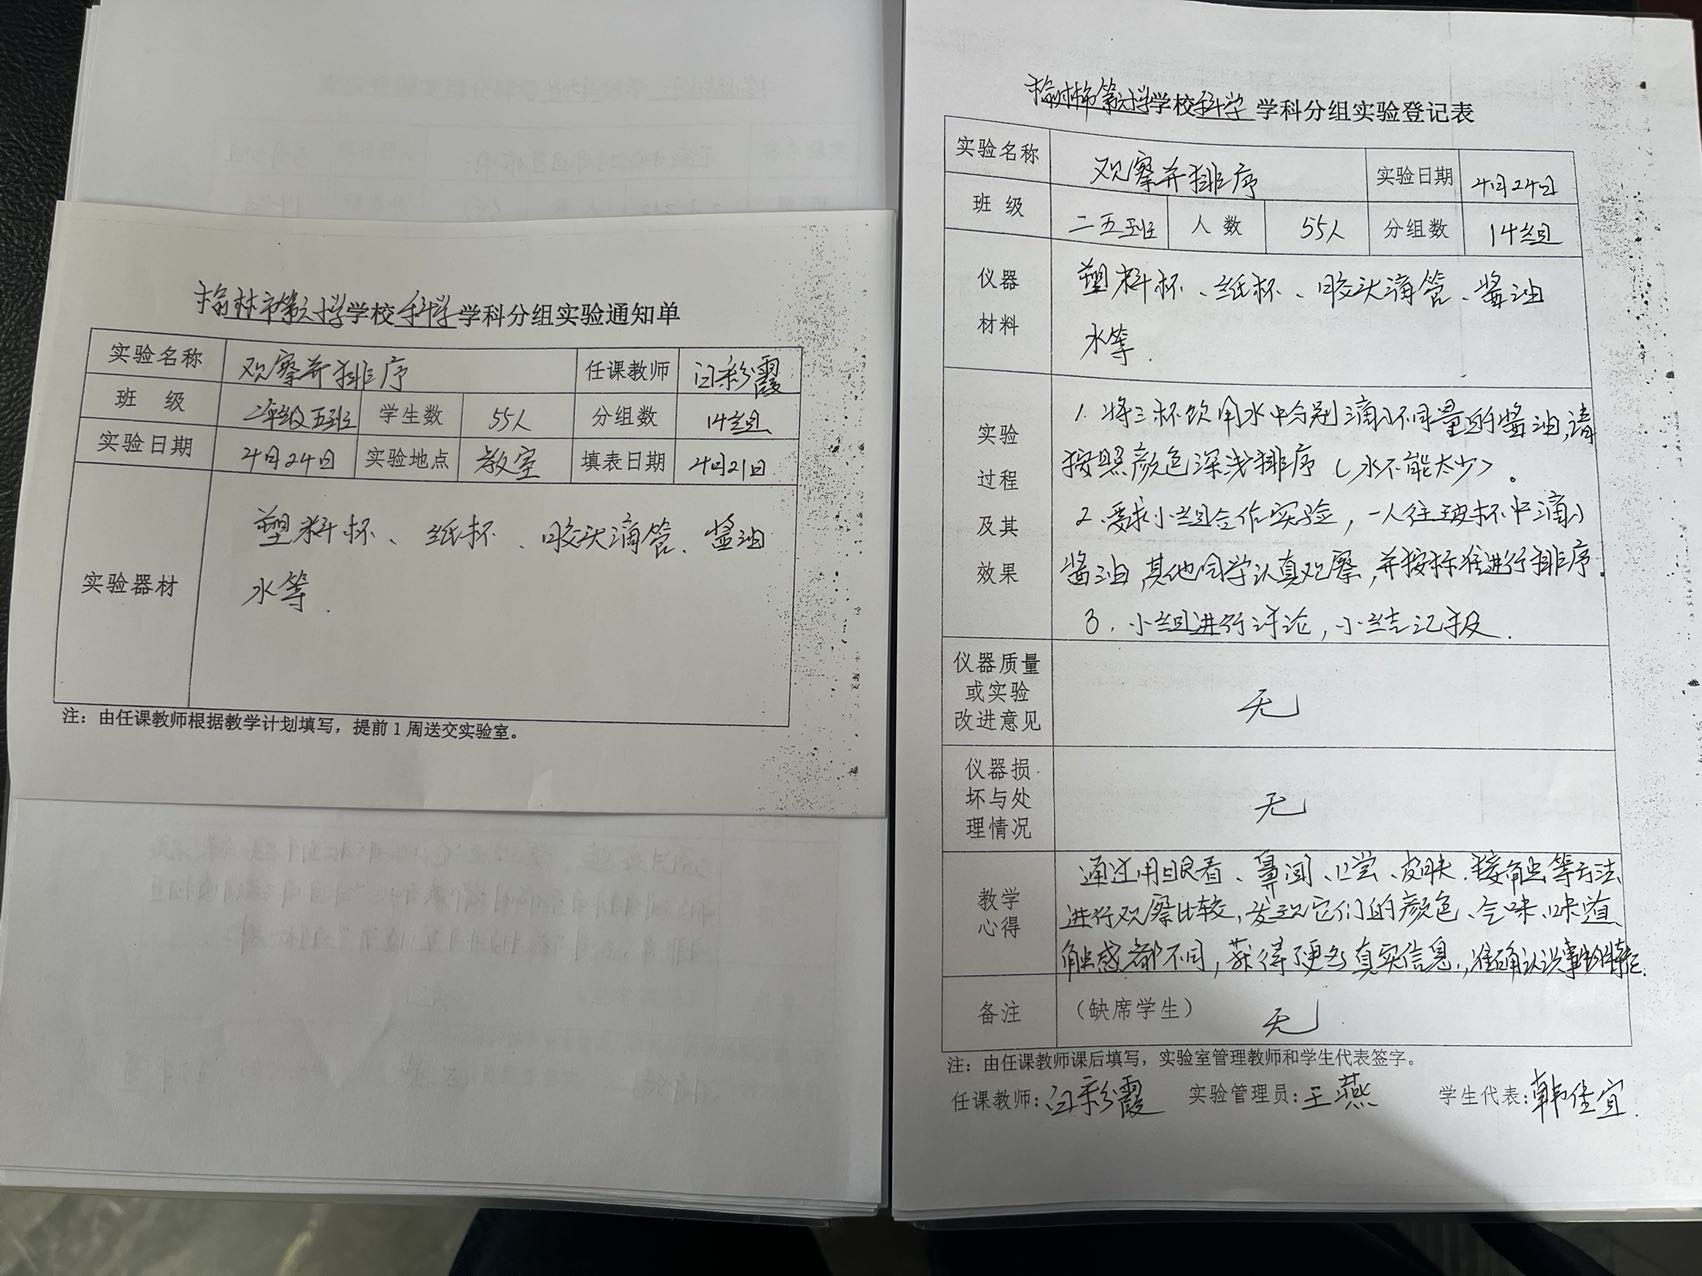 榆林市第六小学学校科学学科分组实验通知单
实验名称 观察并排序 任课教师 白彩霞
班 级 二年级五班 学生数 55人 分组数 14组
实验日期 4月24日 实验地点 教室 填表日期 4月21日
实验器材 塑料杯、纸杯、胶头滴管、酱油
水等.
注：由任课教师根据教学计划填写，提前1周送交实验室。
榆林市第六小学学校科学学科分组实验登记表
实验名称 观察并排序 实验日期 4月24日
班 级 二五班 人 数 55人 分组数 14组
仪器材料 塑料杯、纸杯、胶头滴管、酱油
水等.
实验过程及其效果
1. 将三杯饮用水中分别滴入不同量的酱油,请
按照颜色深浅排序（水不能太少）。
2. 要求小组合作实验，一人往玻杯中滴入
酱油,其他同学认真观察,并按标准进行排序.
3. 小组进行讨论,小结记报.
仪器质量或实验改进意见 无
仪器损坏与处理情况 无
教学心得
通过用眼看、鼻闻、口尝、皮肤接触等方法
进行观察比较,发现它们的颜色、气味、味道
触感都不同,获得了更多真实信息,准确认识事物特征.
备注 （缺席学生） 无
注：由任课教师课后填写，实验室管理教师和学生代表签字。
任课教师:白彩霞 实验管理员:王燕 学生代表:韩佳宜.